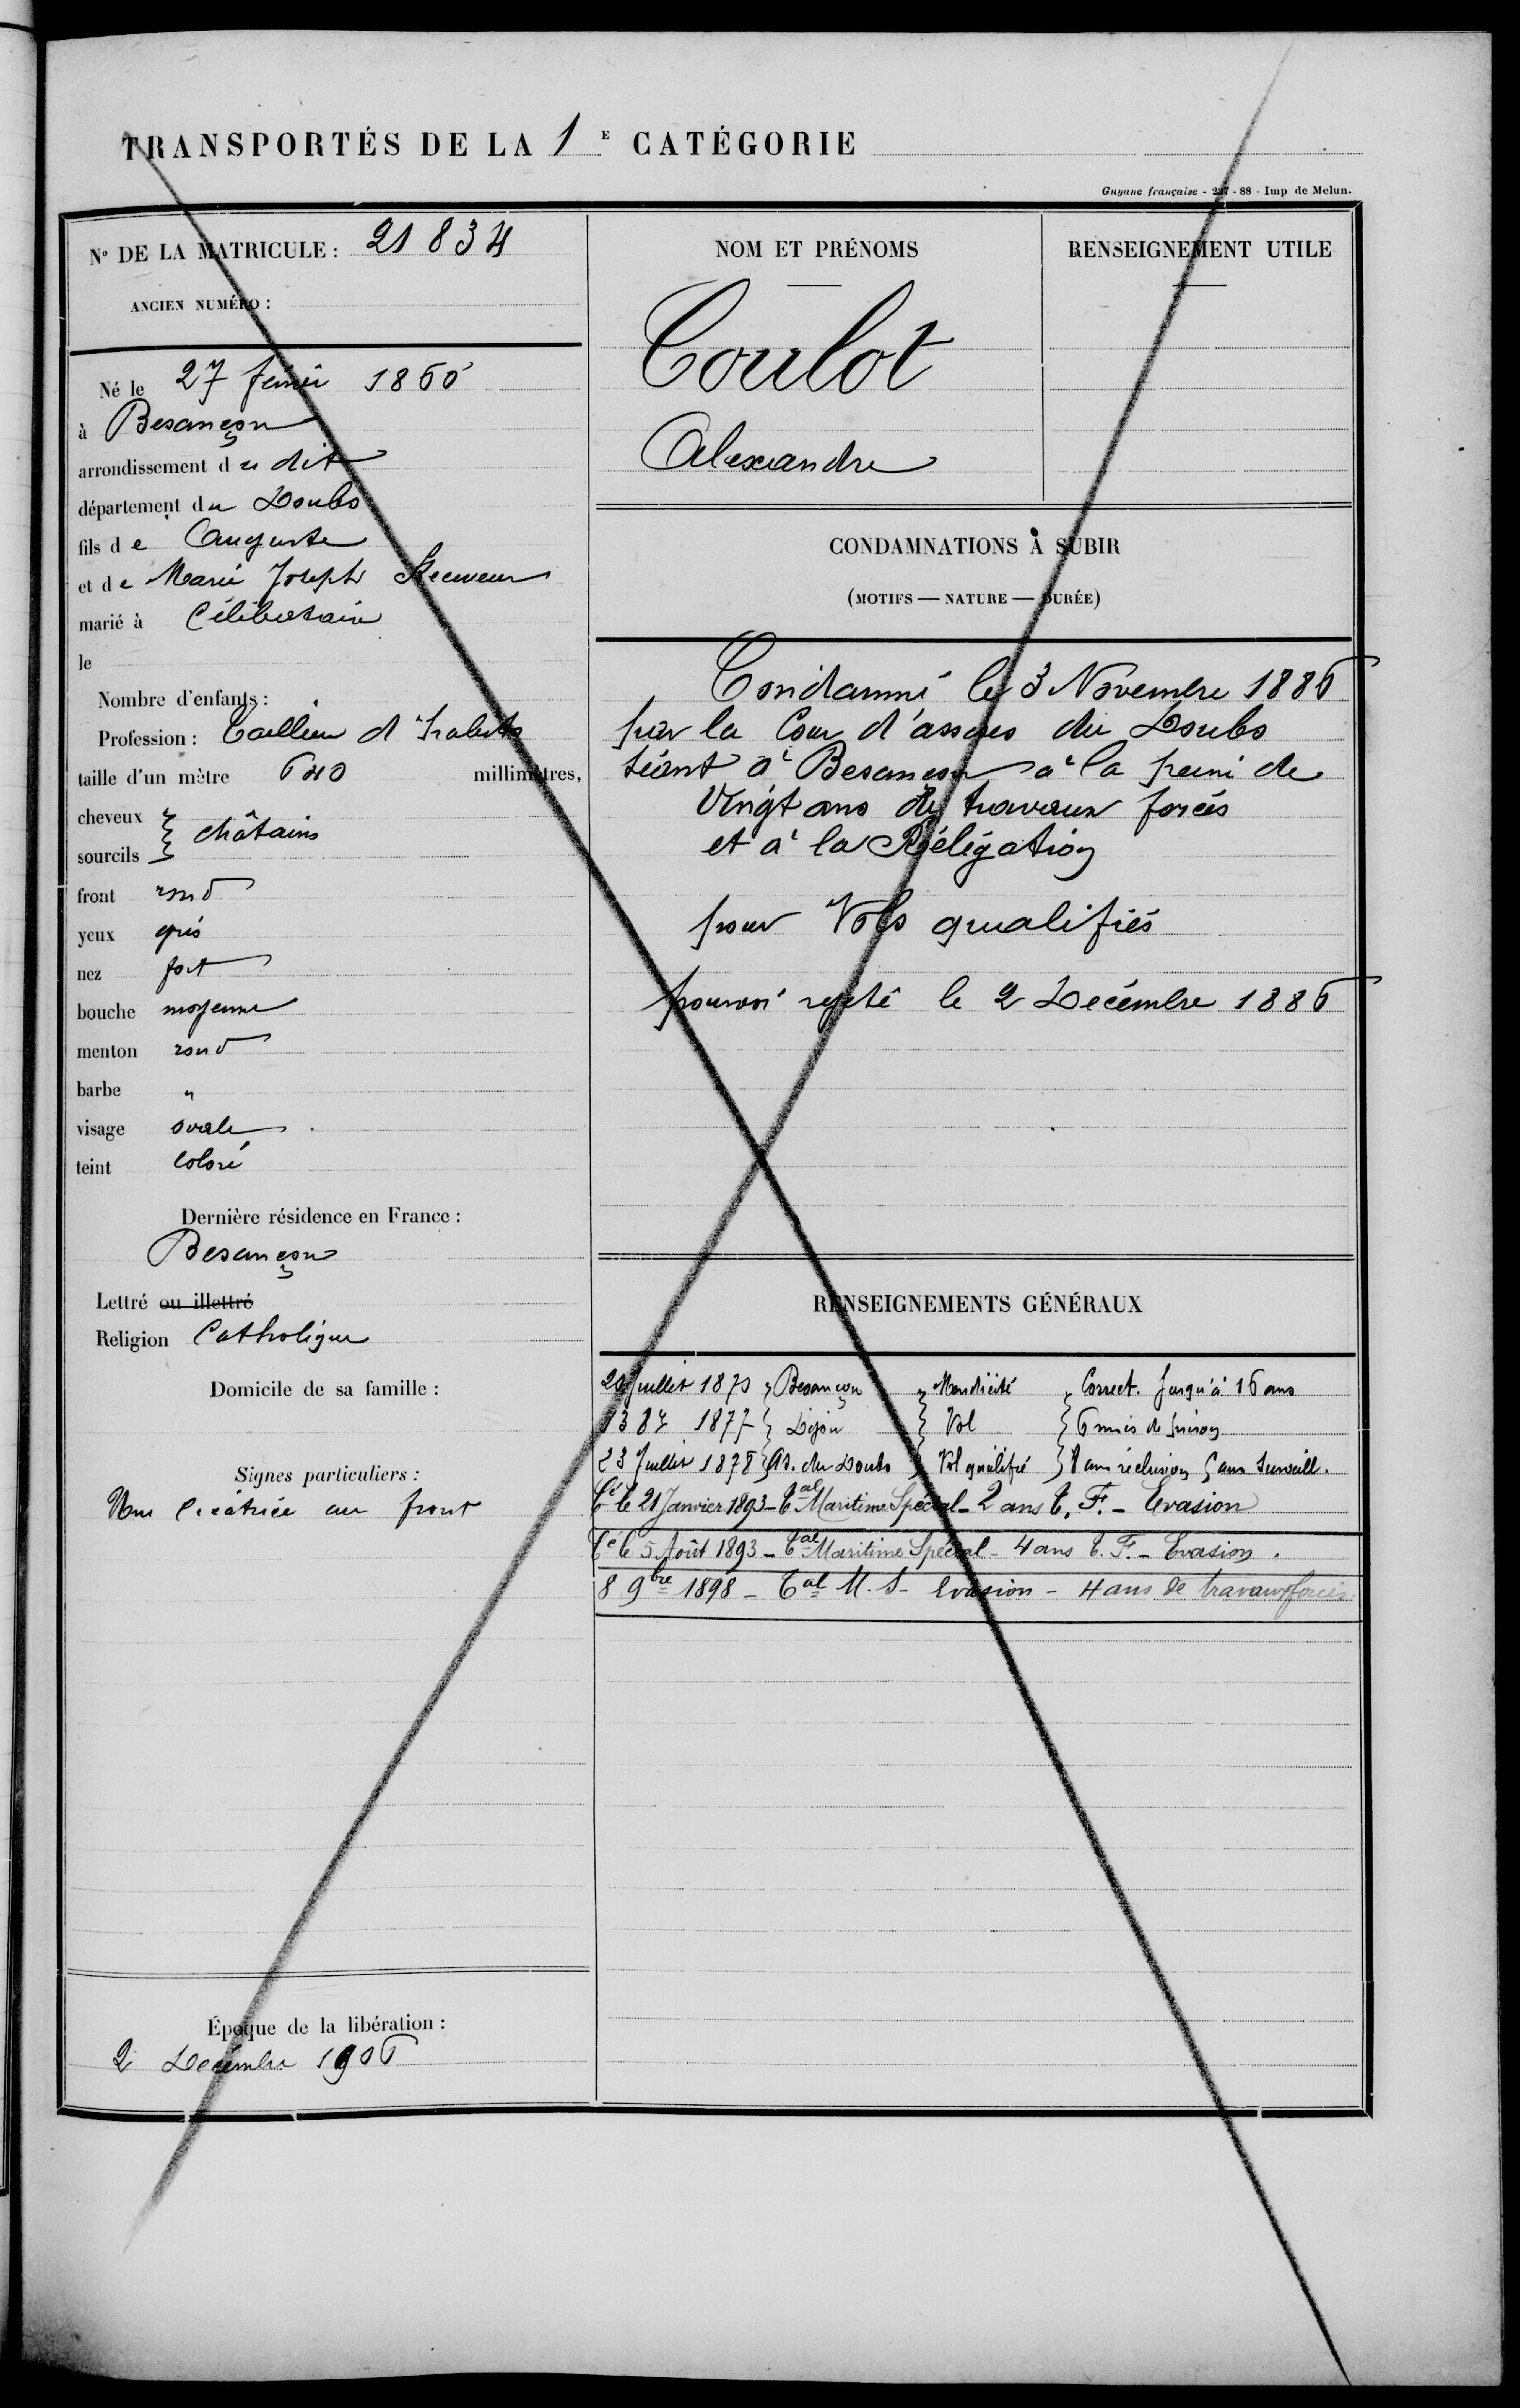 TRANSPORTÉS DE LA 1E CATÉGORIE
Guyane française - 237 - 88 - Imp de Melun.
No DE LA MATRICULE : 21834
ANCIEN NUMÉRO :
Né le 27 février 1860
à Besançon
arrondissement du dit
département du Doubs
fils de Auguste
et de Marie Joseph
marié à Célibataire
le
Nombre d'enfants :
Profession : Tailleur d'habits
taille d'un mètre 640 millimètres,
cheveux
sourcils } châtains
front rond
yeux gris
nez fort
bouche moyenne
menton rond
barbe "
visage ovale
teint coloré
Dernière résidence en France :
Besançon
Lettré ou illettré
Religion Catholique
Domicile de sa famille :
Signes particuliers :
Une cicatrice au front
Époque de la libération :
2 Décembre 1906
NOM ET PRÉNOMS
Coulot
Alexandre
RENSEIGNEMENT UTILE
CONDAMNATIONS À SUBIR
(MOTIFS — NATURE — DURÉE)
Condamné le 3 Novembre 1886
par la Cour d'assises du Doubs
séant à Besançon à la peine de
Vingt ans de travaux forcés
et à la Rélégation
pour Vols qualifiés
pourvoi rejeté le 2 Décembre 1886
RENSEIGNEMENTS GÉNÉRAUX
Juillet 187 } Besançon } Mendicité } Correct. jusqu'à 16 ans
13 8bre 1877 } Dijon } Vol } 6 mois de prison
23 Juillet 1878 } As. du Doubs } Vol qualifié } 8 ans réclusion 5 ans surveill.
Cé le 21 Janvier 1893 - Tal Maritime Spécial - 2 ans T. F. - Evasion
Cé le 5 Août 1893 - Tal Maritime Spécial - 4 ans T. F. - Evasion.
8 9bre 1898 - Tal M. S - Evasion - 4 ans de travaux forcés